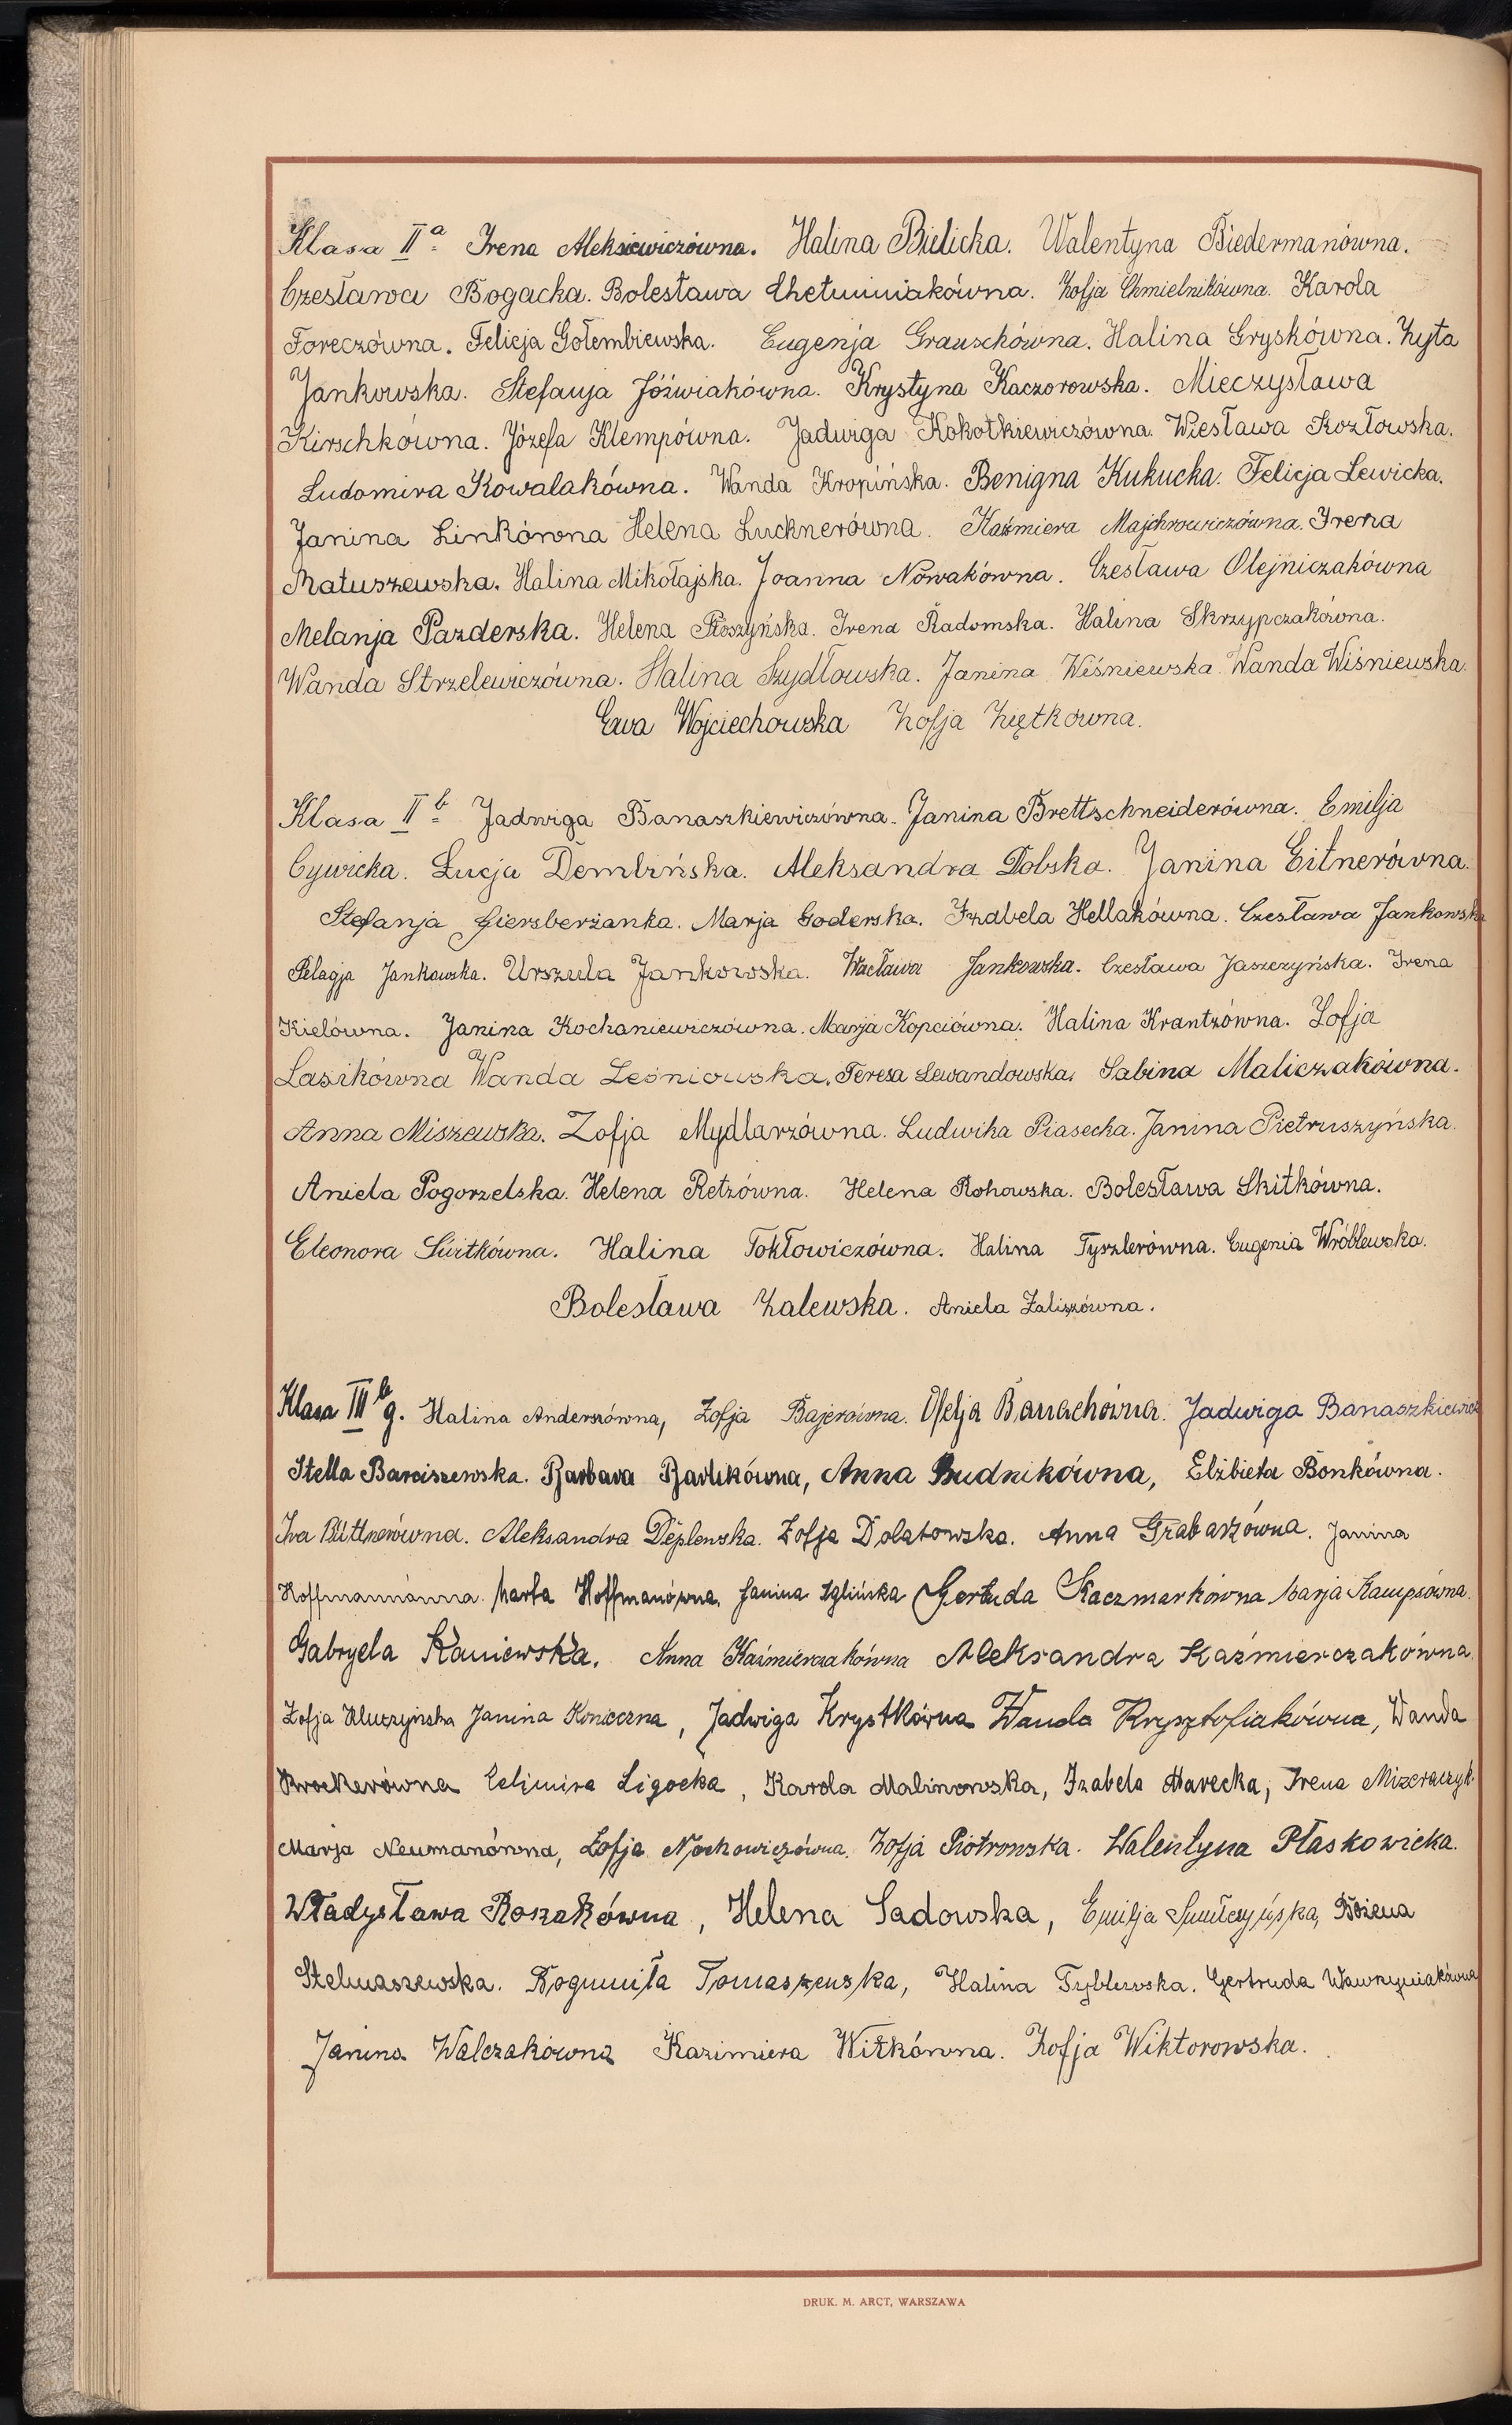 Klasa IIa Irena Aleksiewiczówna. Halina Bielicka. Walentyna Biedermanówna.
Czesława Bogacka. Bolesława Chełminiakówna. Zofja Chmielnikówna. Karola
Foreczówna. Felicja Gołembiewska. Eugenja Grauschówna. Halina Gryskówna. Zyta
Jankowska. Stefanja Jóźwiakówna. Krystyna Kaczorowska. Mieczysława
Kirschkówna. Józefa Klempówna. Jadwiga Kokotkiewiczówna. Wiesława Kozłowska.
Ludomira Kowalakówna. Wanda Kropińska. Benigna Kukucka. Felicja Lewicka.
Janina Linkówna Helena Lucknerówna. Kaźmiera Majchrowiczówna. Irena
Matuszewska. Halina Mikołajska. Joanna Nowakówna. Czesława Olejniczakówna
Melanja Pazderska. Helena Płoszyńska. Irena Radomska. Halina Skrzypczakówna.
Wanda Strzelewiczówna. Halina Szydłowska. Janina Wiśniewska. Wanda Wiśniewska.
Ewa Wojciechowska Zofja Ziętkówna.
Klasa IIb Jadwiga Banaszkiewiczówna. Janina Brettschneiderówna. Emilja
Cywicka. Łucja Dembińska. Aleksandra Dobska. Janina Eitnerówna.
Stefanja Giersberżanka. Marja Goderska. Izabela Hellakówna. Czesława Jankowska
Pelagja Jankowska. Urszula Jankowska. Wacława Jankowska. Czesława Jaszczyńska. Irena
Kielówna. Janina Kochaniewiczówna. Marja Kopciówna. Halina Krantzówna. Zofja
Lasikówna Wanda Leśniowska. Teresa Lewandowska. Sabina Maliczakówna.
Anna Miszewska. Zofja Mydlarzówna. Ludwika Piasecka. Janina Pietruszyńska.
Aniela Pogorzelska. Helena Retzówna. Helena Rohowska. Bolesława Skitkówna.
Eleonora Świtkówna. Halina Tokłowiczówna. Halina Tyszlerówna. Eugenia Wróblewska.
Bolesława Zalewska. Aniela Zaliszówna.
Klasa IIIb g. Halina Anderszówna, Zofja Bajerówna. Ofelja Banachówna. Jadwiga Banaszkiewicz
Stella Barciszewska. Barbara Bartkówna, Anna Budnikówna, Elżbieta Bonkówna.
Iva Büttnerówna. Aleksandra Deplewska. Zofja Dolatowska. Anna Grabarzówna. Janina
Hoffmannówna. Marta Hoffmanówna. Janina Iglińska Gertuda Kaczmarkówna Marja Kampsówna.
Gabryela Kaniewska. Anna Kaźmierczakówna Aleksandra Kaźmierczakówna.
Zofja Kluczyńska Janina Konieczna, Jadwiga Krystkówna Wanda Krysztofiakówna, Wanda
Krockerówna Celimira Ligocka, Karola Malinowska, Izabela Marecka, Irena Mizeraczyk
Marja Neumanówna, Zofja Nochowiczówna. Zofja Piotrowska. Walentyna Płaskowicka.
Władysława Roszakówna, Helena Sadowska, Emilja Smułczyńska, Bożena
Stelmaszewska. Bogumiła Tomaszewska, Halina Tyblewska. Gertruda Wawrzyniakówna
Janina Walczakówna Kazimiera Witkówna. Zofja Wiktorowska.
DRUK. M. ARCT, WARSZAWA